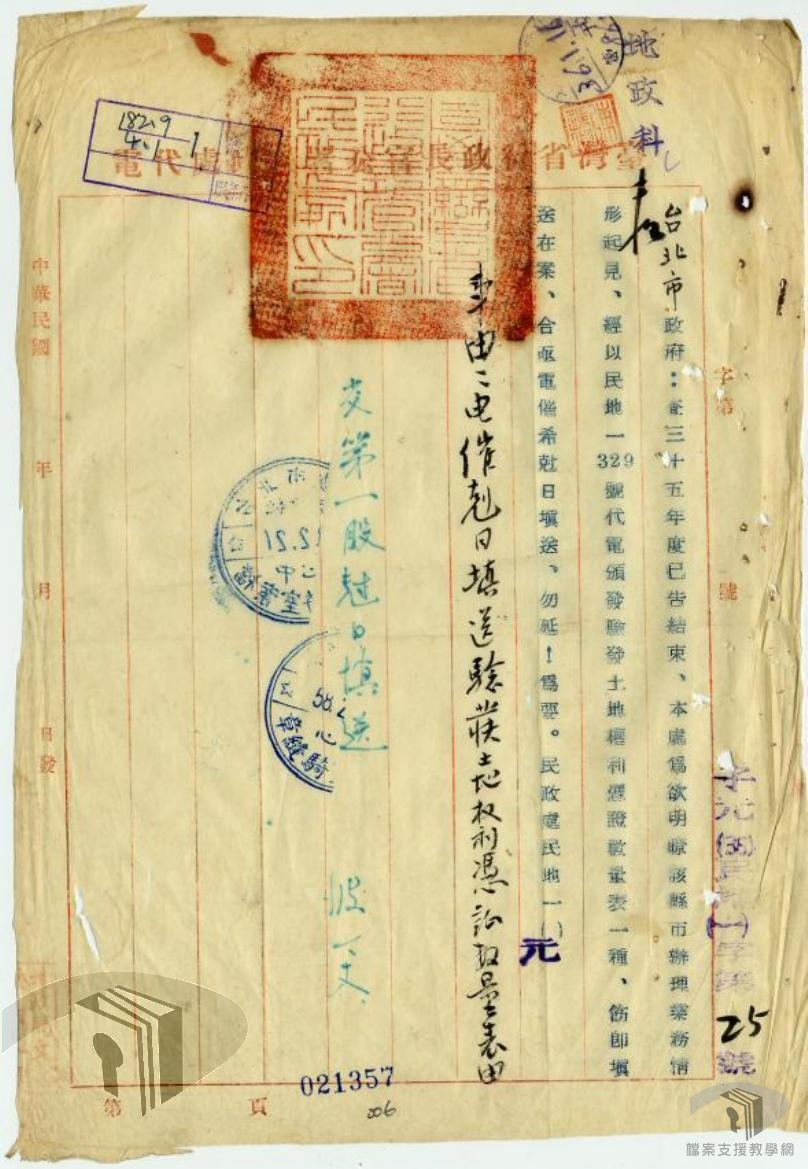 地政科
臺灣省行政長官公署民政處代電
18219
4.1
1
36.1.
字第 號
子元(36)民地(一)字第25號
台北市政府：查三十五年度已告結束、本處爲欲明瞭該縣市辦理業務情
形起見、經以民地一329號代電頒發驗發土地權利憑證數量表一種、飭即填
送在案、合亟電催希尅日填送、勿延！爲要。民政處民地一()
元
事由：电催尅日填送驗發土地权利憑証数量表由
交第一股尅日填送
12.21
中心
檔案室
58.2
騎縫章
中華民國 年 月 日發
第 頁
021357
006
檔案支援教學網